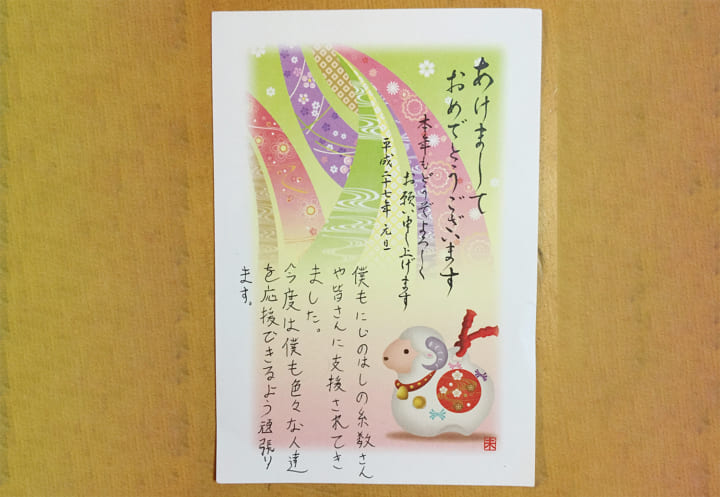 あけまして
おめでとうございます
本年もどうぞよろしく
お願い申し上げます
平成二十七年 元旦
僕もにじのはしの糸数さん
や皆さんに支援されてき
ました。
今度は僕も色々な人達
を応援できるよう頑張り
ます。
未